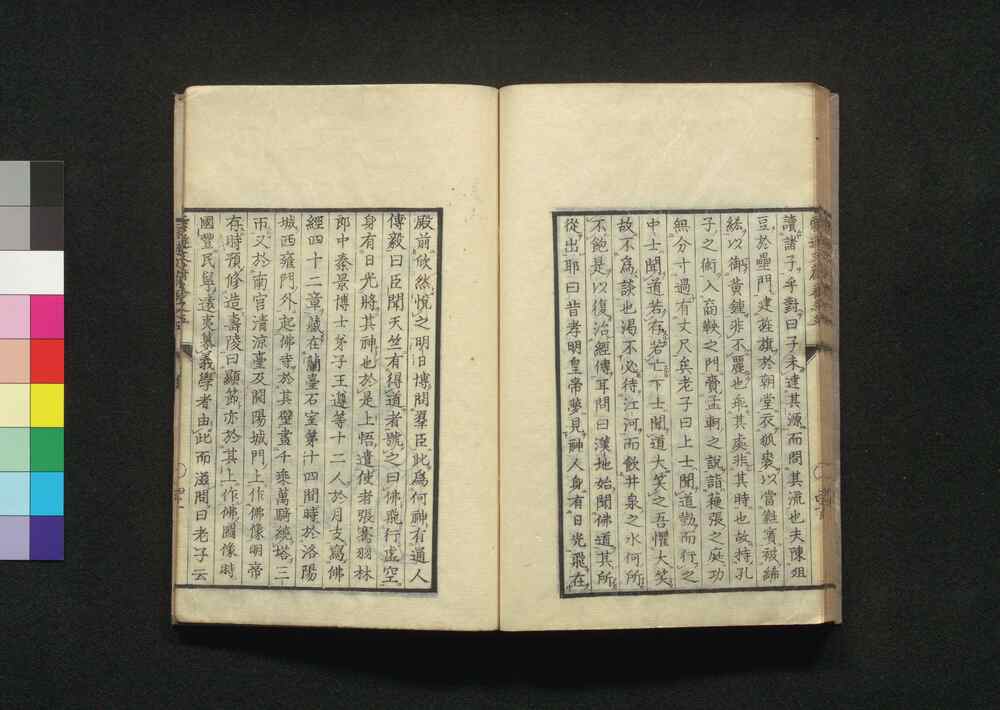 讀諸子乎對曰子未達其源而問其流也夫陳俎
豆於壘門建旌旗於朝堂衣狐裘以當蕤賓被絺
綌以御黃鍾非不麗也乖其處非其時也故持孔
子之術入商鞅之門賫孟軻之說詣蘇張之庭功
無分寸過有丈尺矣老子曰上士聞道勤而行之
中士聞道若存若亡下士聞道大笑之吾懼大笑
故不為談也渴不必待江河而飲井泉之水何所
不飽是以復治經傳耳問曰漢地始聞佛道其所
從出耶曰昔孝明皇帝夢見神人身有日光飛在
殿前欣然悅之明日博問羣臣此為何神有通人
傳毅曰臣聞天竺有得道者號之曰佛飛行虛空
身有日光將其神也於是上悟遣使者張騫羽林
郎中秦景博士弟子王遵等十二人於月支寫佛
經四十二章藏在蘭臺石室第十四間時於洛陽
城西雍門外起佛寺於其壁畫千乘萬騎繞塔三
帀又於南宮清涼臺及開陽城門上作佛像明帝
存時預修造壽陵曰顯節亦於其上作佛圖像時
國豐民寧遠夷慕義學者由此而滋問曰老子云